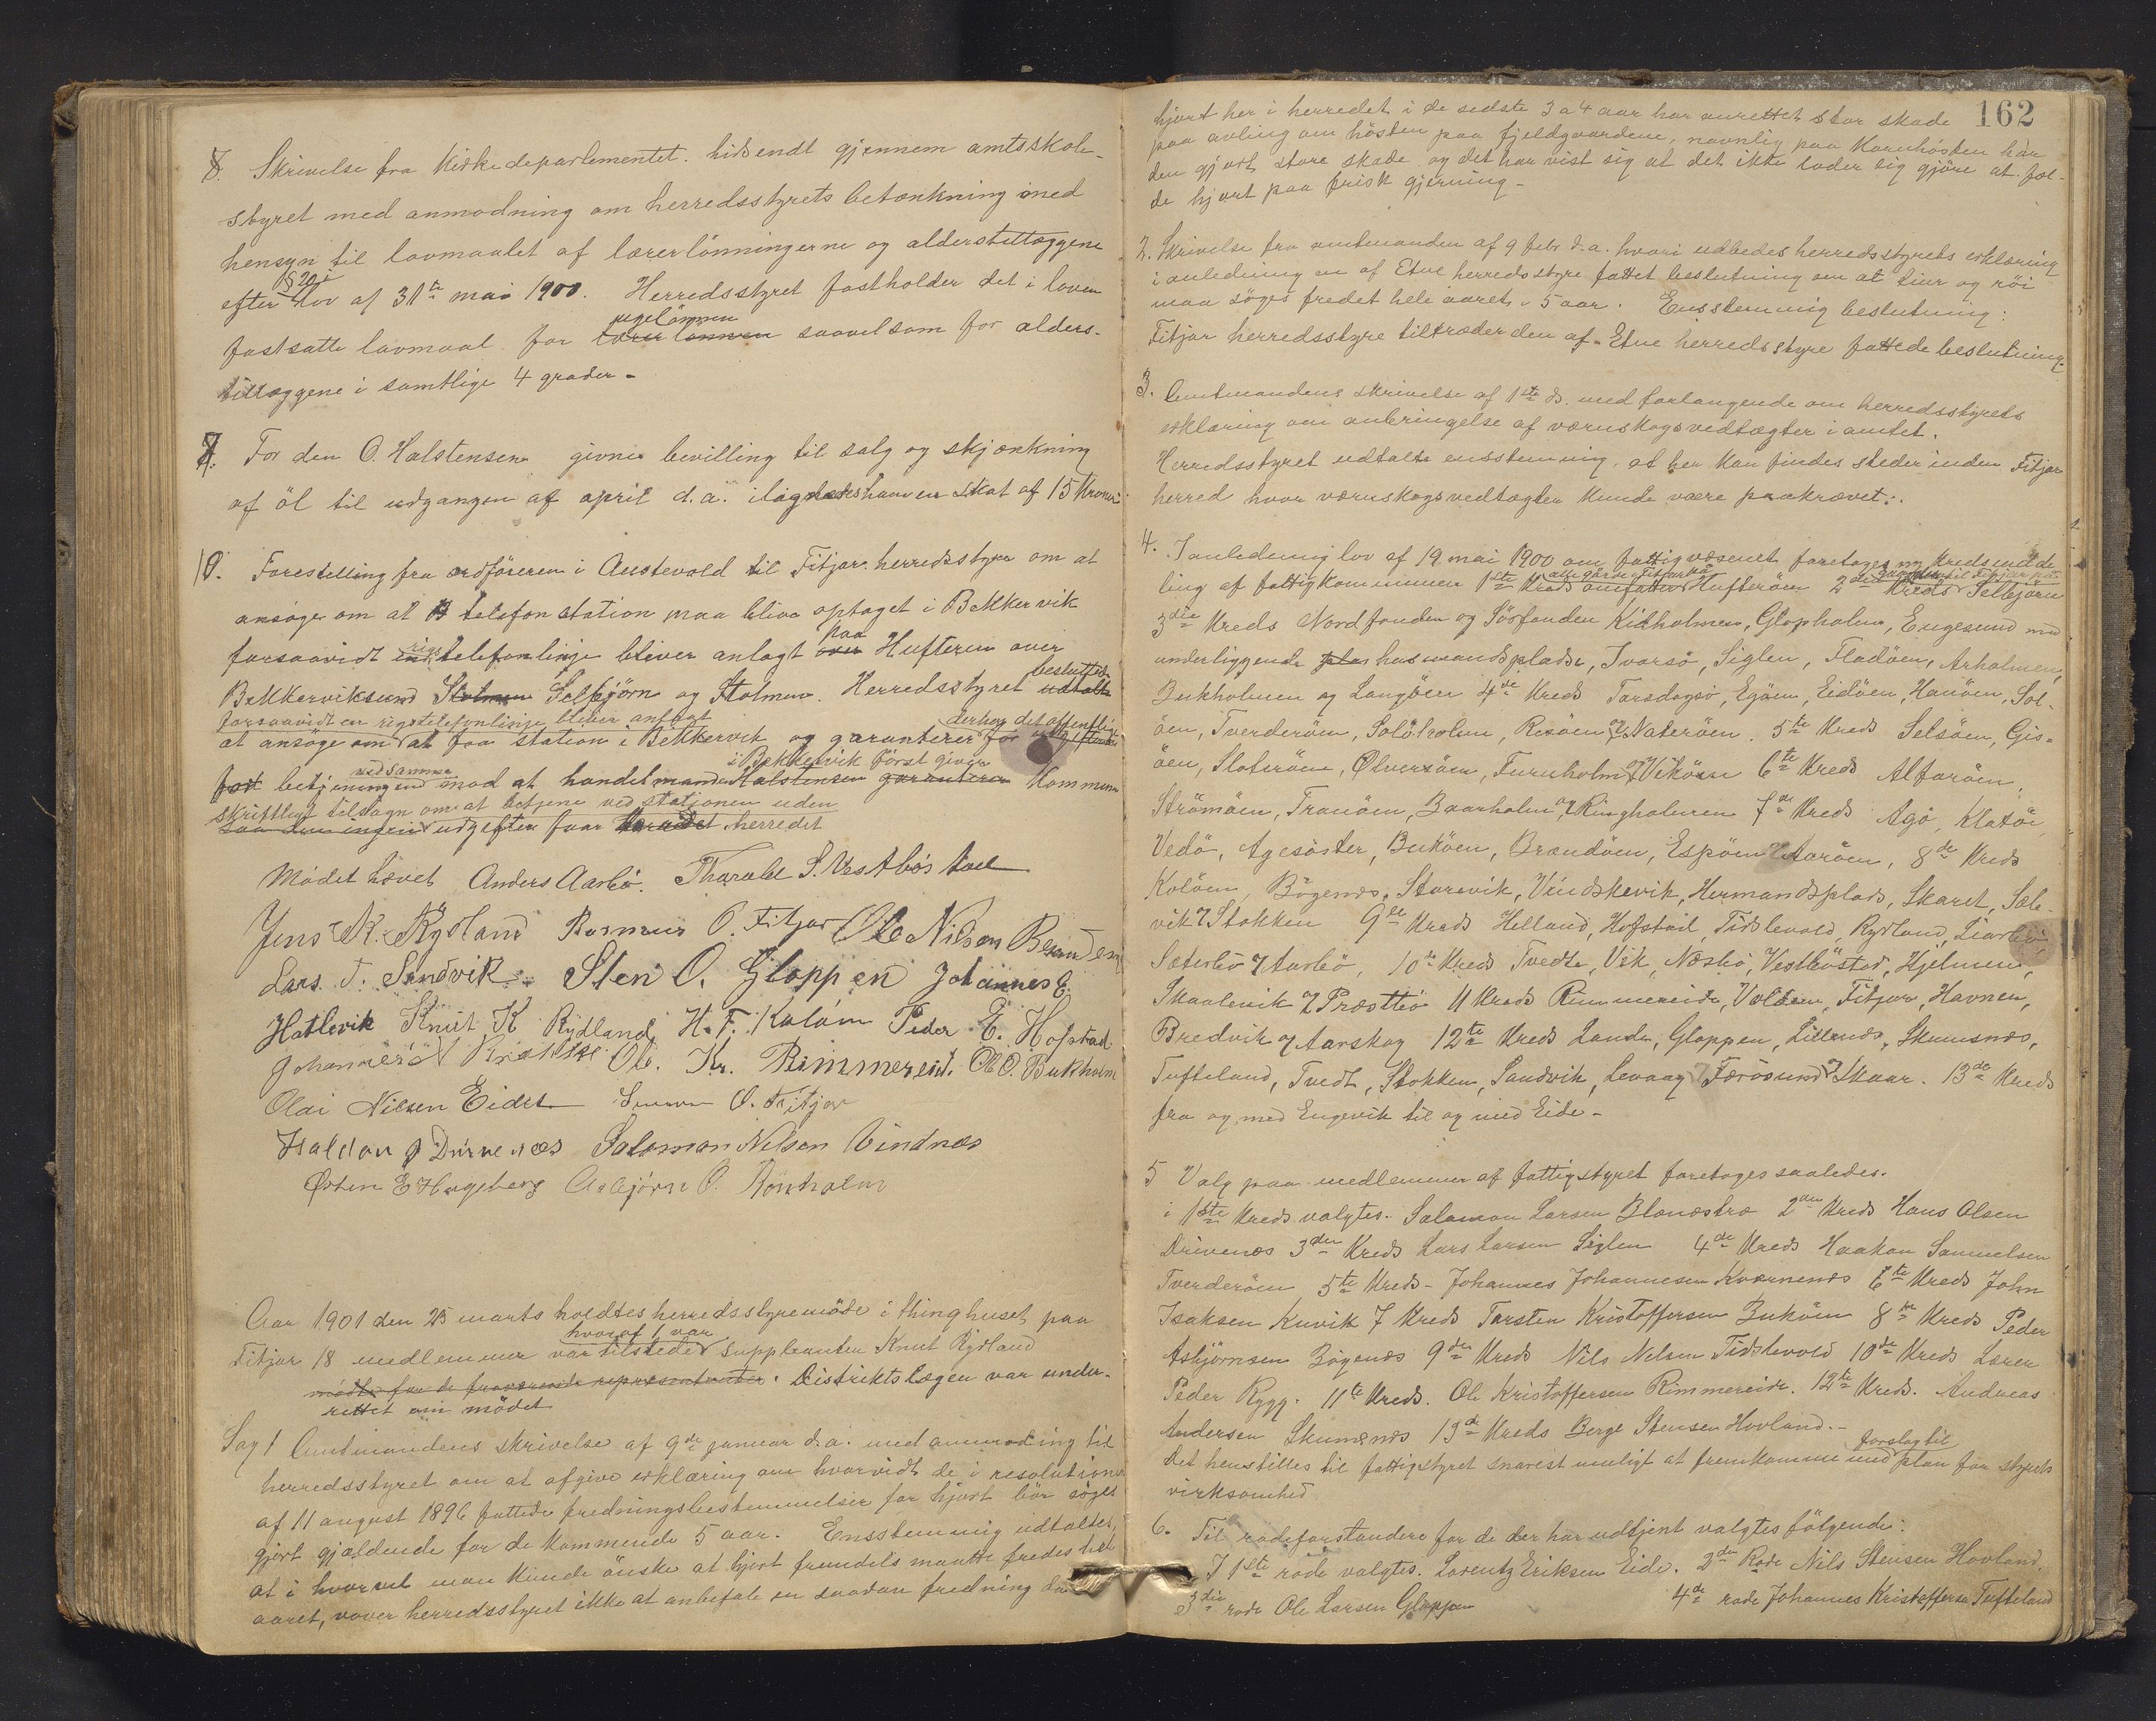 8. Skrivelse fra Kirkedepartementet. hidsendt gjennem amtsskole-
styret med anmodning om herredsstyrets betænkning med
hensyn til lavmaalet af lærerlönningerne og alderstillæggene
§ 20 i
efter lov af 31te mai 1900. Herredsstyret fastholder det i loven
ugelönnen
fastsatte lavmaal for lærerlönnen saavelsom for alders-
tillæggene i samtlige 4 grader -
9. For den O. Halstensen givne bevilling til salg og skjænkning
af öl til udgangen af april d.a. ilignedes han en skat af 15 Kroner
10. Forestilling fra ordföreren i Austevold til Fitjar herredsstyre om at
ansöge om at telefonstation maa blive optaget i Bekkervik
rigs paa
forsaavidt en telefonlinje bliver anlagt over Hufteren over
besluttede
Bekkerviksund Stolmen Selbjörn og Stolmen. Herredsstyret udtalte
forsaavidt en rigstelefonlinje bliver anlagt derhos det offentlige
at ansöge om at faa station i Bekkervik og garanterer for udgifterne
ved samme i Bekkervik först giver
fast betjeningen mod at handelsmand Halstensen garanterer Kommunen
skriftligt tilsagn om at betjene ved stationen uden
saa den ingen udgifter faar herredet herredet
Mödet hævet Anders Aarbö. Tharald S. Vestböstad
Jens N. Rydland Rasmus O. Fitjar Ole Nilsen Beanden
Lars T. Sandvik Sten O. Gloppen Johannes E.
Hatlevik Knut K Rydland H. F. Kolöen Peder E. Hofstad
Johannes N Brekke Ole Kr. Rimmereid. Ole O. Bukholm
Olai Nilsen Eidet Simon O. Fitjar
Haldor J Drivenes Salomon Nilsen Vindnæs
Östen E Hageberg Asbjörn O. Rönholm
Aar 1901 den 23 marts holdtes herredsstyremöde i thinghuset paa
hvoraf 1 var
Fitjar 18 medlemmer var tilstede suppleanten Knut Rydland
mödte for de fraværende repræsentanter. Distriktslægen var under-
rettet om mödet
Sag 1 Amtmandens skrivelse af 9de januar d.a. med anmodning til
herredsstyret om at afgive erklæring om hvorvidt de i resolutionen
af 11 august 1896 fattede fredningsbestemmelser for hjort bör söges
gjort gjældende for de kommende 5 aar. Ensstemmig udtaltes,
at i hvorvel man kunde önske at hjort fremdeles maatte fredes hele
aaret, vover herredsstyret ikke at anbefale en saadan fredning da
162
hjort her i herredet i de sidste 3 a 4 aar har anrettet stor skade
paa avling om hösten paa fjeldgaardene, navnlig paa kornhösten har
den gjort stare skade og det har vist sig at det ikke lader sig gjöre at fæl-
de hjort paa frisk gjerning -
2. Skrivelse fra amtmanden af 9 febr d.a. hvori udbedes herredsstyrets erklæring
i anledning en af Etne herredsstyre fattet beslutning om at tiur og röi
maa söges fredet hele aaret i 5 aar. Ensstemmig beslutning:
Fitjar herredsstyre tiltræder den af Etne herredsstyre fattede beslutning.
3. Amtmandens skrivelse af 1ste ds. med forlangende om herredsstyrets
erklæring om anbringelse af værnskogsvedtægter i amtet.
Herredsstyret udtalte ensstemmig, at her kan findes steder inden Fitjar
herred hvor værnskogsvedtægter kunde være paakrævet.
4. I anledning lov af 19 mai 1900 om fattigvæsenet foretages ny kredsindde
alle gårde i Fitjar
ling af fattigkommunen 1ste Kreds omfatter Hufteröen 2den Kreds Selbjörn
3die Kreds Nordfonden og Sörfonden Kidholmen, Glopholm, Engesund med
underliggende plas husmandspladse, Ivarsö, Siglen, Fladöen, Arholmen,
Bukholmen og Langöen 4de Kreds Torsdagsö, Egöen, Eidöen, Hanöen, Sol-
öen, Tverderöen, Solöholm, Risöen og Nateröen. 5te Kreds Selsöen, Gis-
öen, Sloteröen, Ölversöen, Furuholm og Viköen 6te Kreds Alforöen,
Strömöen, Tranöen, Baarholm og Ringholmen 7de Kreds Agö, Klatöi
Vedö, Agesöster, Buköen, Brandöen, Espöen og Aaröen, 8de Kreds
Kolöen, Bögenæs, Storevik, Vindskevik, Hermandsplads, Skaret, Sæle-
vik og Stokken 9de Kreds Helland, Hofstad, Tidslevold, Rydland, Liarbö,
Sæterbö og Aarbö, 10de Kreds Tvedte, Vik, Næsbö, Vestböstad, Hjelmen,
Skaalevik og Præstbö 11 Kreds Rimmereide, Volden, Fitjar, Havnen,
Bredvik og Aarskog 12te Kreds Lande, Gloppen, Lillenæs, Skumsnæs,
Tufteland, Tvedt, Stokken, Sandvik, Levaag og Færösund og Skaar. 13de Kreds
fra og med Engevik til og med Eide -
5 Valg paa medlemmer af fattigstyret foretages saaledes.
i 1ste Kreds valgtes. Salomon Larsen Blænæstræ 2den Kreds Hans Olsen
Drivenæs 3den Kreds Lars Larsen Siglen 4de Kreds Haakon Samuelsen
Tverderöen 5te Kreds - Johannes Johannesen Kværnenæs 6te Kreds John
Isaksen Kuvik 7 Kreds Torsten Kristoffersen Buköen 8de Kreds Peder
Asbjörnsen Bögenæs 9de Kreds Nils Nilsen Tidslevold 10de Kreds Lærer
Peder Rygg. 11te Kreds. Ole Kristoffersen Rimmereide. 12te Kreds. Andreas
Andersen Skumsnæs 13de Kreds Berge Stensen Hovland. -
forslag til
Det henstilles til fattigstyret snarest muligt at fremkomme med plan for styrets
virksomhed
6. Til rodeforstandere for de der har udtjent valgtes fölgende:
I 1ste rode valgtes. Lorentz Eriksen Eide. 2den Rode Nils Stensen Hovland,
3die rode Ole Larsen Gloppen 4de rode Johannes Kristoffersen Tufteland